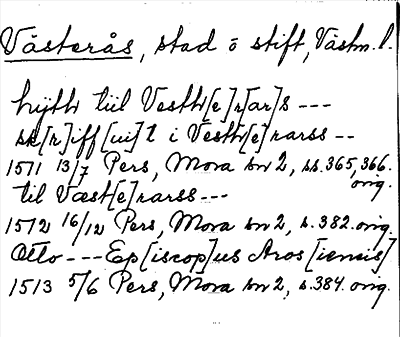 Västerås, stad o stift, Västm. l.
hijtr til Vestr[e]r[ar]s ---
sk[r]iff[ui]t i Vestr[e]rarss --
1511 13/7 Pers, Mora sn 2, ss. 365, 366. orig.
til Væst[e]rarss ---
1512 16/12 Pers, Mora sn 2, s. 382. orig.
Otto --- Ep[iscop]us Aros[iensis]
1513 5/6 Pers, Mora sn 2, s. 384. orig.